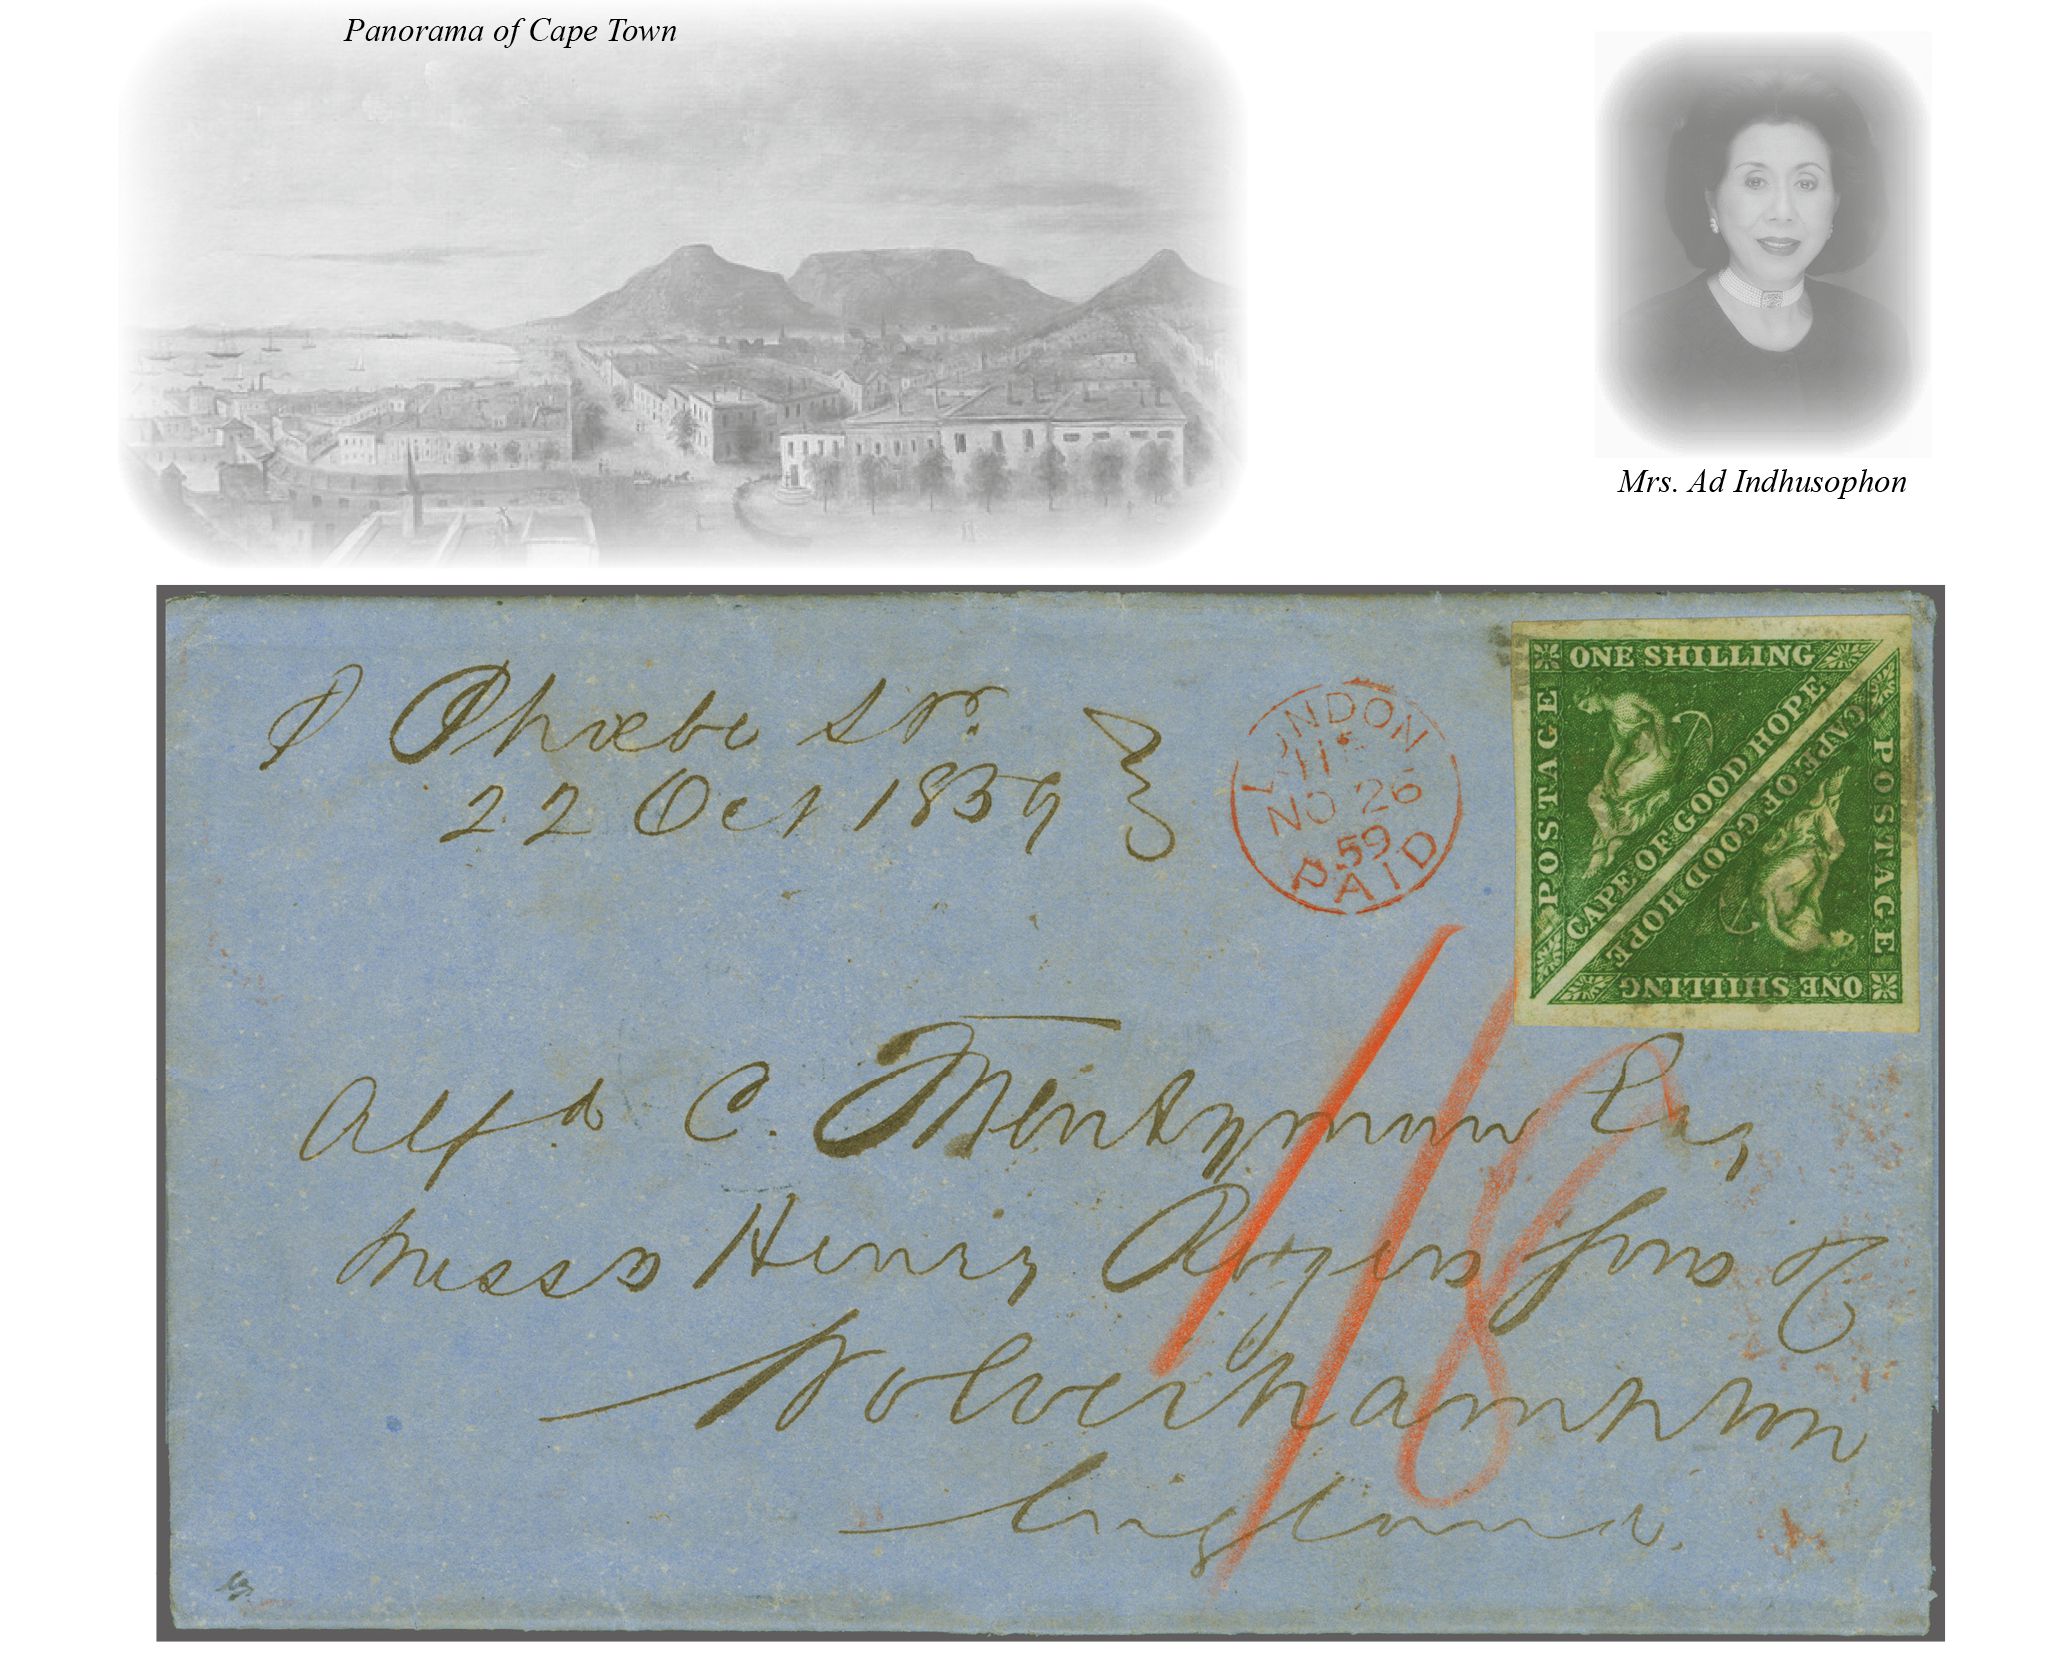 Panorama of Cape Town
Mrs. Ad Indhusophon
P Phœbe Str.
22 Oct 1859
LONDON
NO 26
59
PAID
ONE SHILLING
POSTAGE
CAPE OF GOOD HOPE
CAPE OF GOOD HOPE
POSTAGE
ONE SHILLING
1/8
Alfd C. Esq
Messrs Henry Rogers Sons &
Wolverhampton
England.